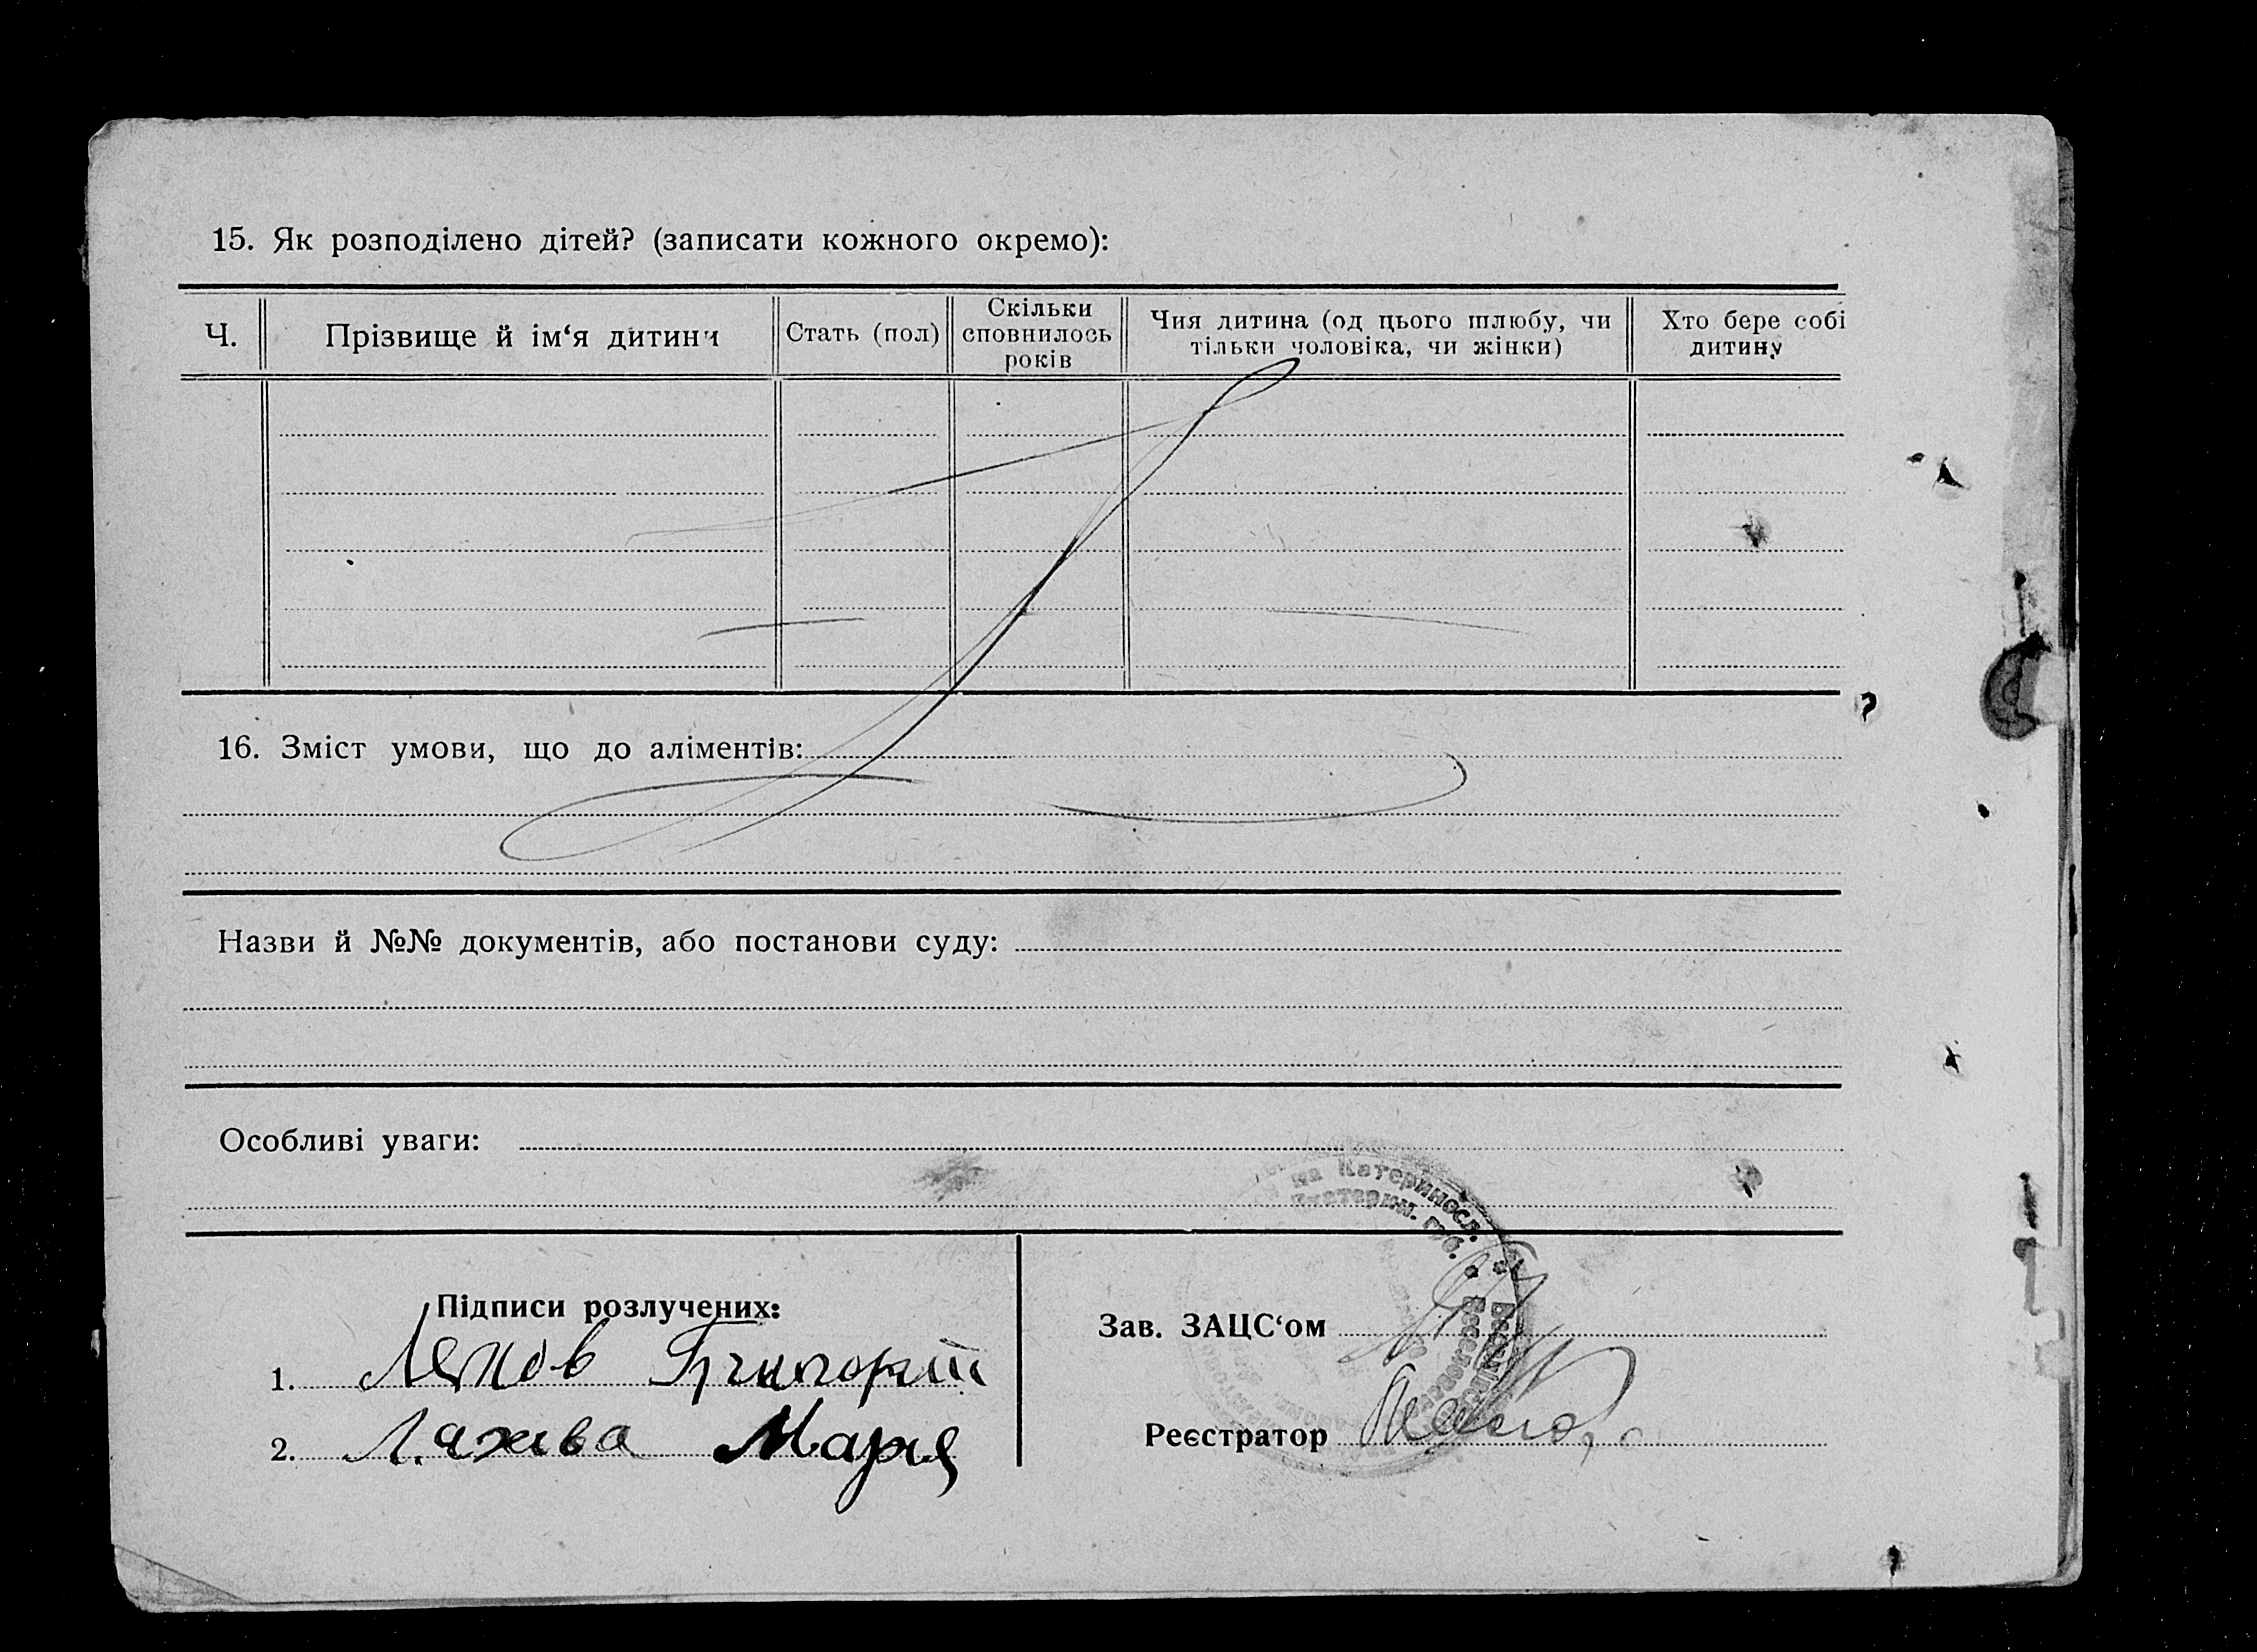 15. Як розподілено дітей? (записати кожного окремо):
Ч. Прізвище й ім‘я дитини Стать (пол) Скільки сповнилось років Чия дитина (од цього шлюбу, чи тільки чоловіка, чи жінки) Хто бере собі дитину
16. Зміст умови, що до аліментів:
Назви й №№ документів, або постанови суду:
Особливі уваги:
на Катериносл.
Екатерин. губ.
Підписи розлучених:
Зав. ЗАЦС‘ом
1. Ляхов Григорій
Реєстратор
2. Ляхва Марія